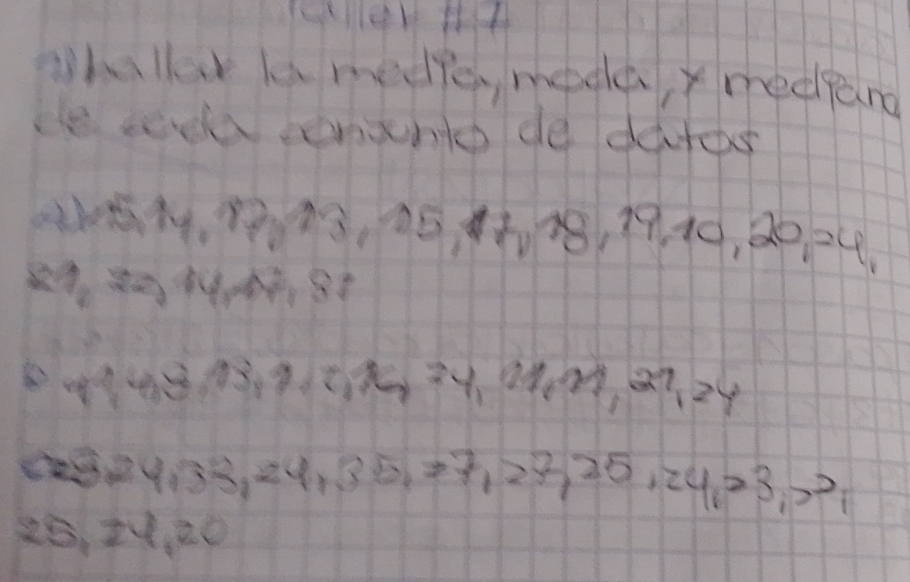 Taller #7
hallar la media, moda, y mediana
de cada conjunto de datos
15, 14, 17, 13, 15, 17, 18, 19, 19, 20, 24,
21, 22, 14, 17,
13, 24, 11, 11, 21, 24
24, 33, 24, 35, 27, 27, 25, 24, 23, 22,
25, 24, 20